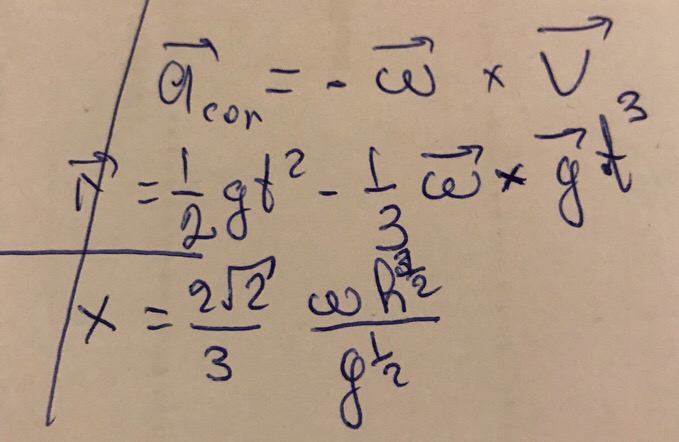 a⃗_cor = - ω⃗ × V⃗
r⃗ = 1/2 gt² - 1/3 ω⃗ × g⃗ t³
x = 2√2/3 ωh^(3/2)/g^(1/2)